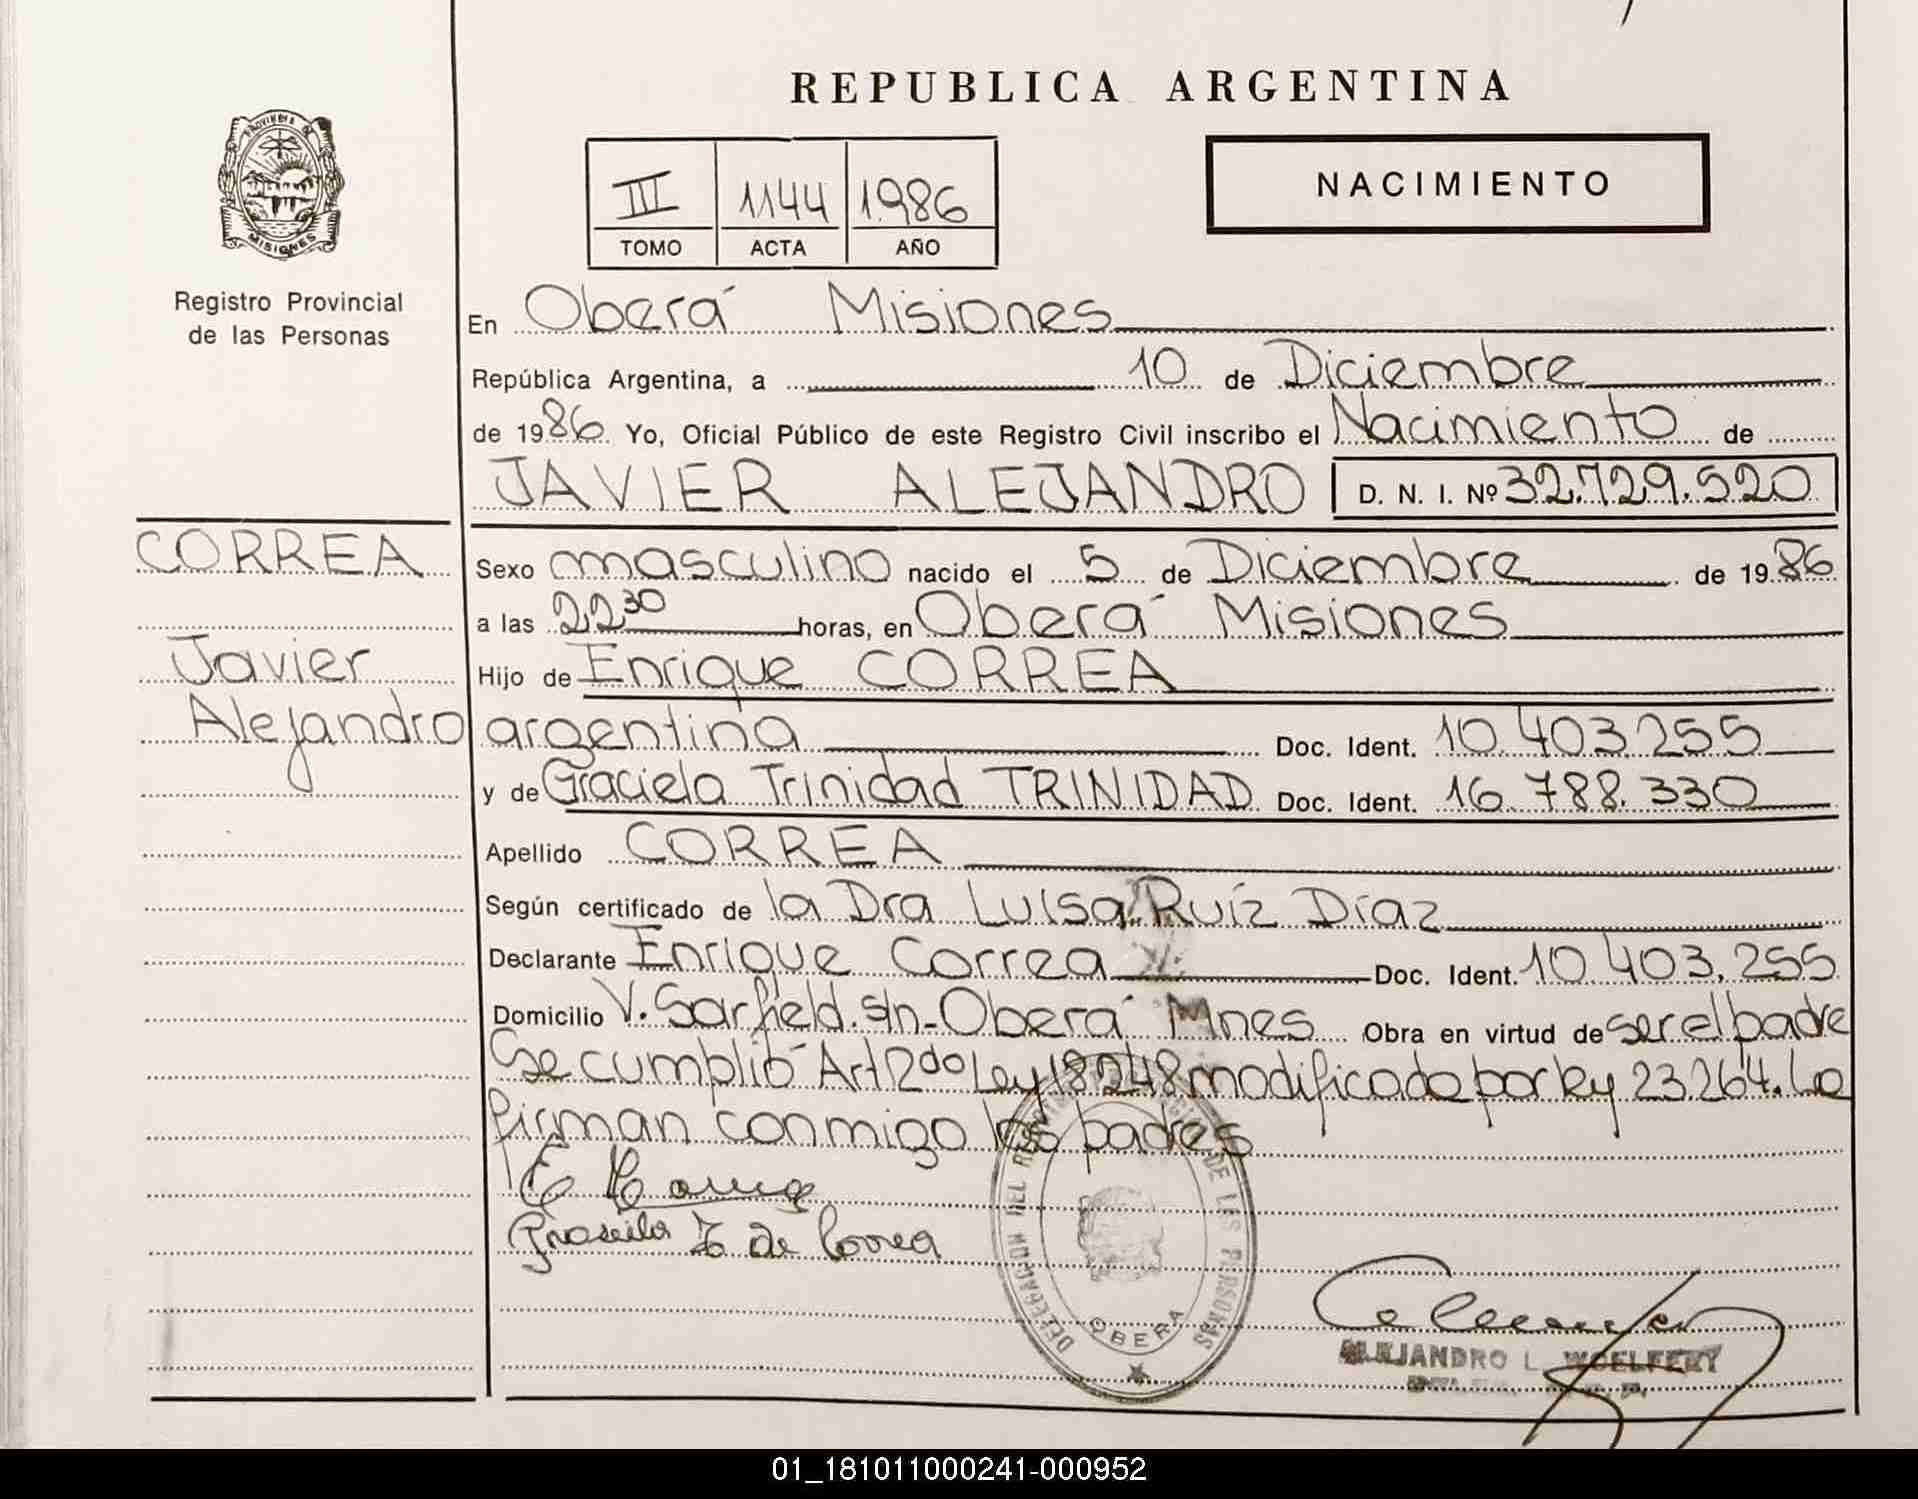 REPUBLICA ARGENTINA
PROVINCIA DE
MISIONES
Registro Provincial
de las Personas
III 1144 1986
TOMO ACTA AÑO
NACIMIENTO
En Oberá Misiones
República Argentina, a 10 de Diciembre
de 1986 Yo, Oficial Público de este Registro Civil inscribo el Nacimiento de
JAVIER ALEJANDRO D. N. I. Nº 32.729.520
CORREA
Javier
Alejandro
Sexo masculino nacido el 5 de Diciembre de 1986
a las 22 30 horas, en Oberá Misiones
Hijo de Enrique CORREA
argentina Doc. Ident. 10.403.255
y de Graciela Trinidad TRINIDAD Doc. Ident. 16.788.330
Apellido CORREA
Según certificado de la Dra Luisa Ruíz Díaz
Declarante Enrique Correa Doc. Ident. 10.403.255
Domicilio V. Sarfield. s/n - Oberá Mnes Obra en virtud de ser el padre
Se cumplió Art 2do Ley 18248 modificado por ley 23.264. Lo
firman conmigo los padres
E Correa
Graciela T de Correa
DELEGACION DEL REGISTRO DE LAS PERSONAS
OBERA
ALEJANDRO L. WOELFERT
01_181011000241-000952